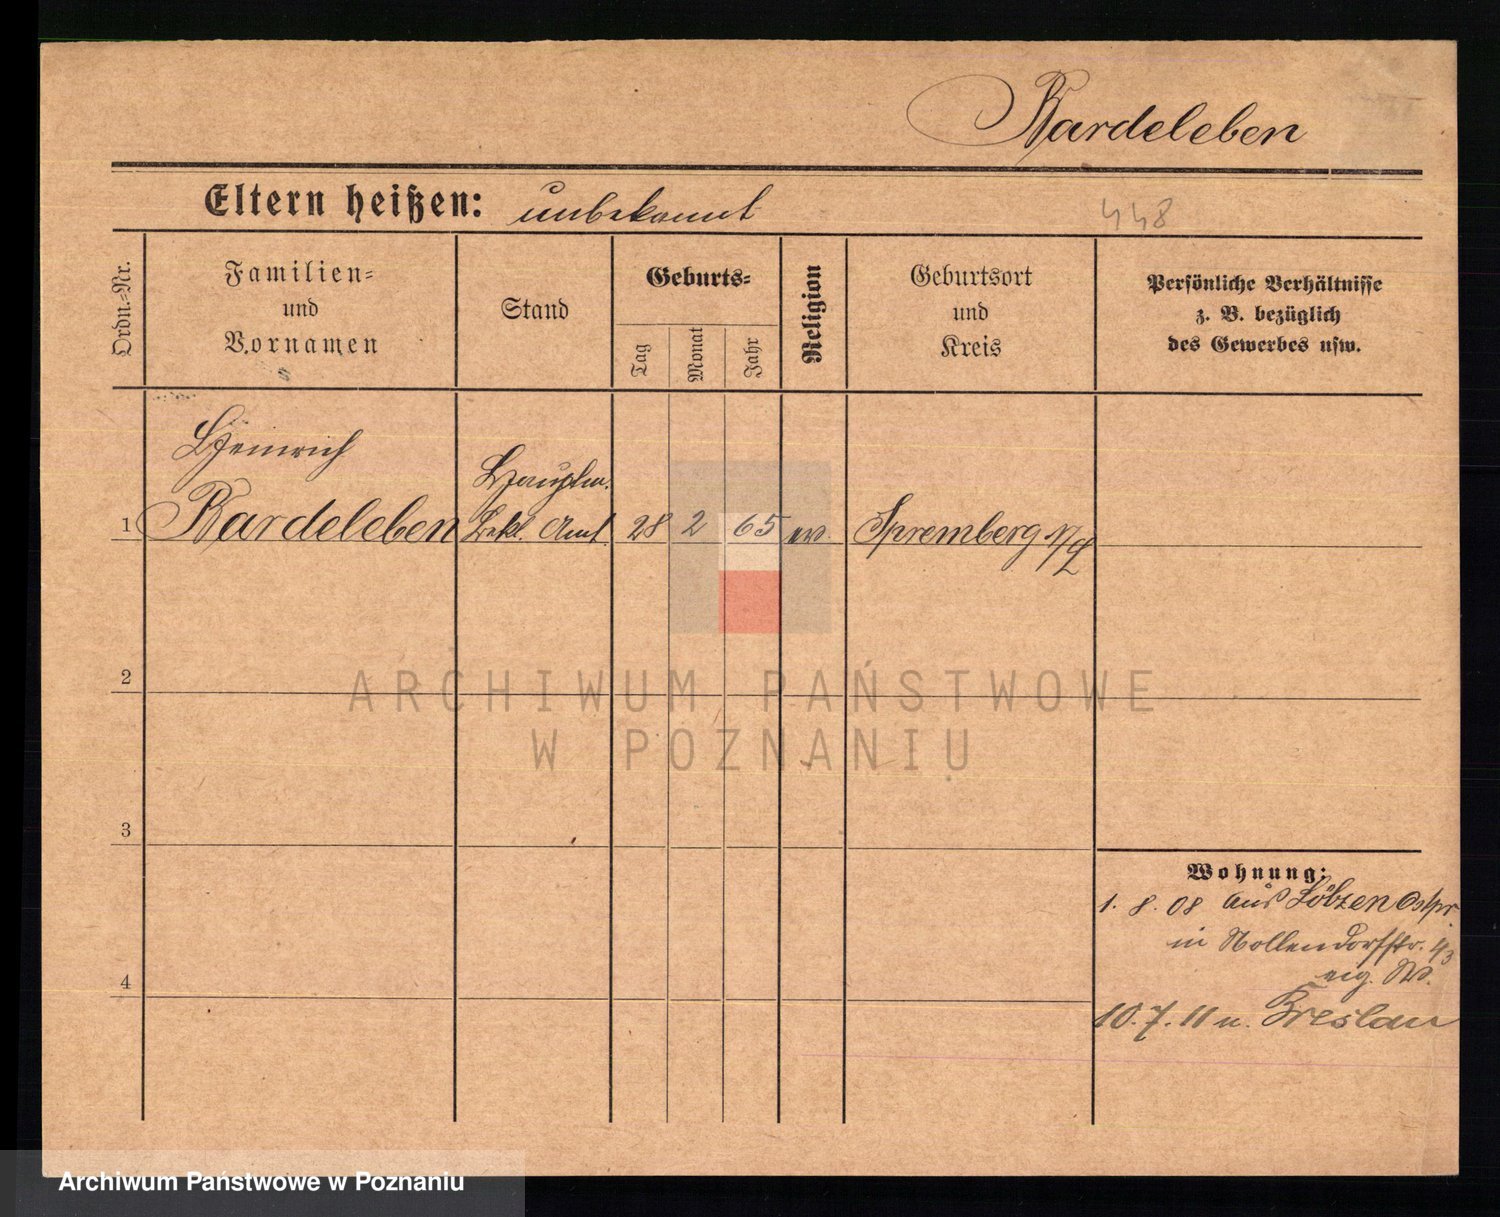 Bardeleben
Eltern heißen: unbekannt
448
Ordn.-Nr.
Familien-
und
Vornamen
Stand
Geburts-
Tag
Monat
Jahr
Religion
Geburtsort
und
Kreis
Persönliche Verhältnisse
z. B. bezüglich
des Gewerbes usw.
Heinrich
Hauptm.
1 Bardeleben Bekl. Amt. 28 2 65 ev. Spremberg N/L
2
ARCHIWUM PAŃSTWOWE
W POZNANIU
3
Wohnung:
1. 8. 08 aus Lötzen Ostpr.
in Nollendorfstr. 43
4
eig. W.
10. 7. 11 n. Breslau
Archiwum Państwowe w Poznaniu